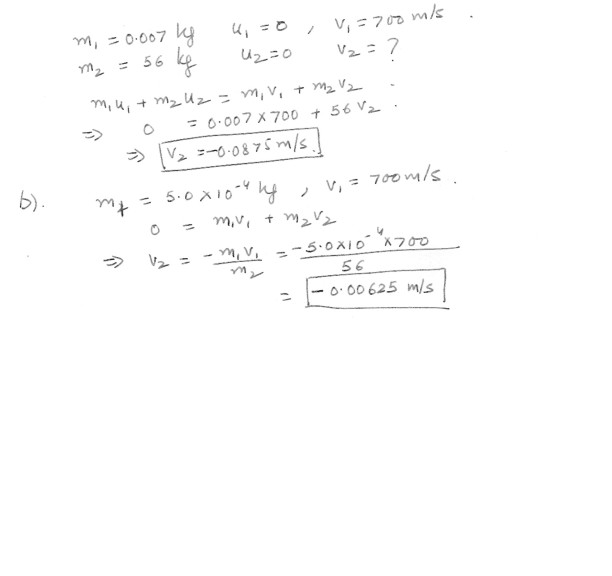 m₁ = 0.007 kg   u₁ = 0 , v₁ = 700 m/s .
m₂ = 56 kg   u₂ = 0   v₂ = ?
m₁u₁ + m₂u₂ = m₁v₁ + m₂v₂ .
⇒ 0 = 0.007 × 700 + 56 v₂ .
⇒ v₂ = -0.0875 m/s.
b). m₁ = 5.0 × 10⁻⁴ kg , v₁ = 700 m/s .
0 = m₁v₁ + m₂v₂
⇒ v₂ = - m₁v₁ / m₂ = - 5.0×10⁻⁴×700 / 56
= - 0.00625 m/s